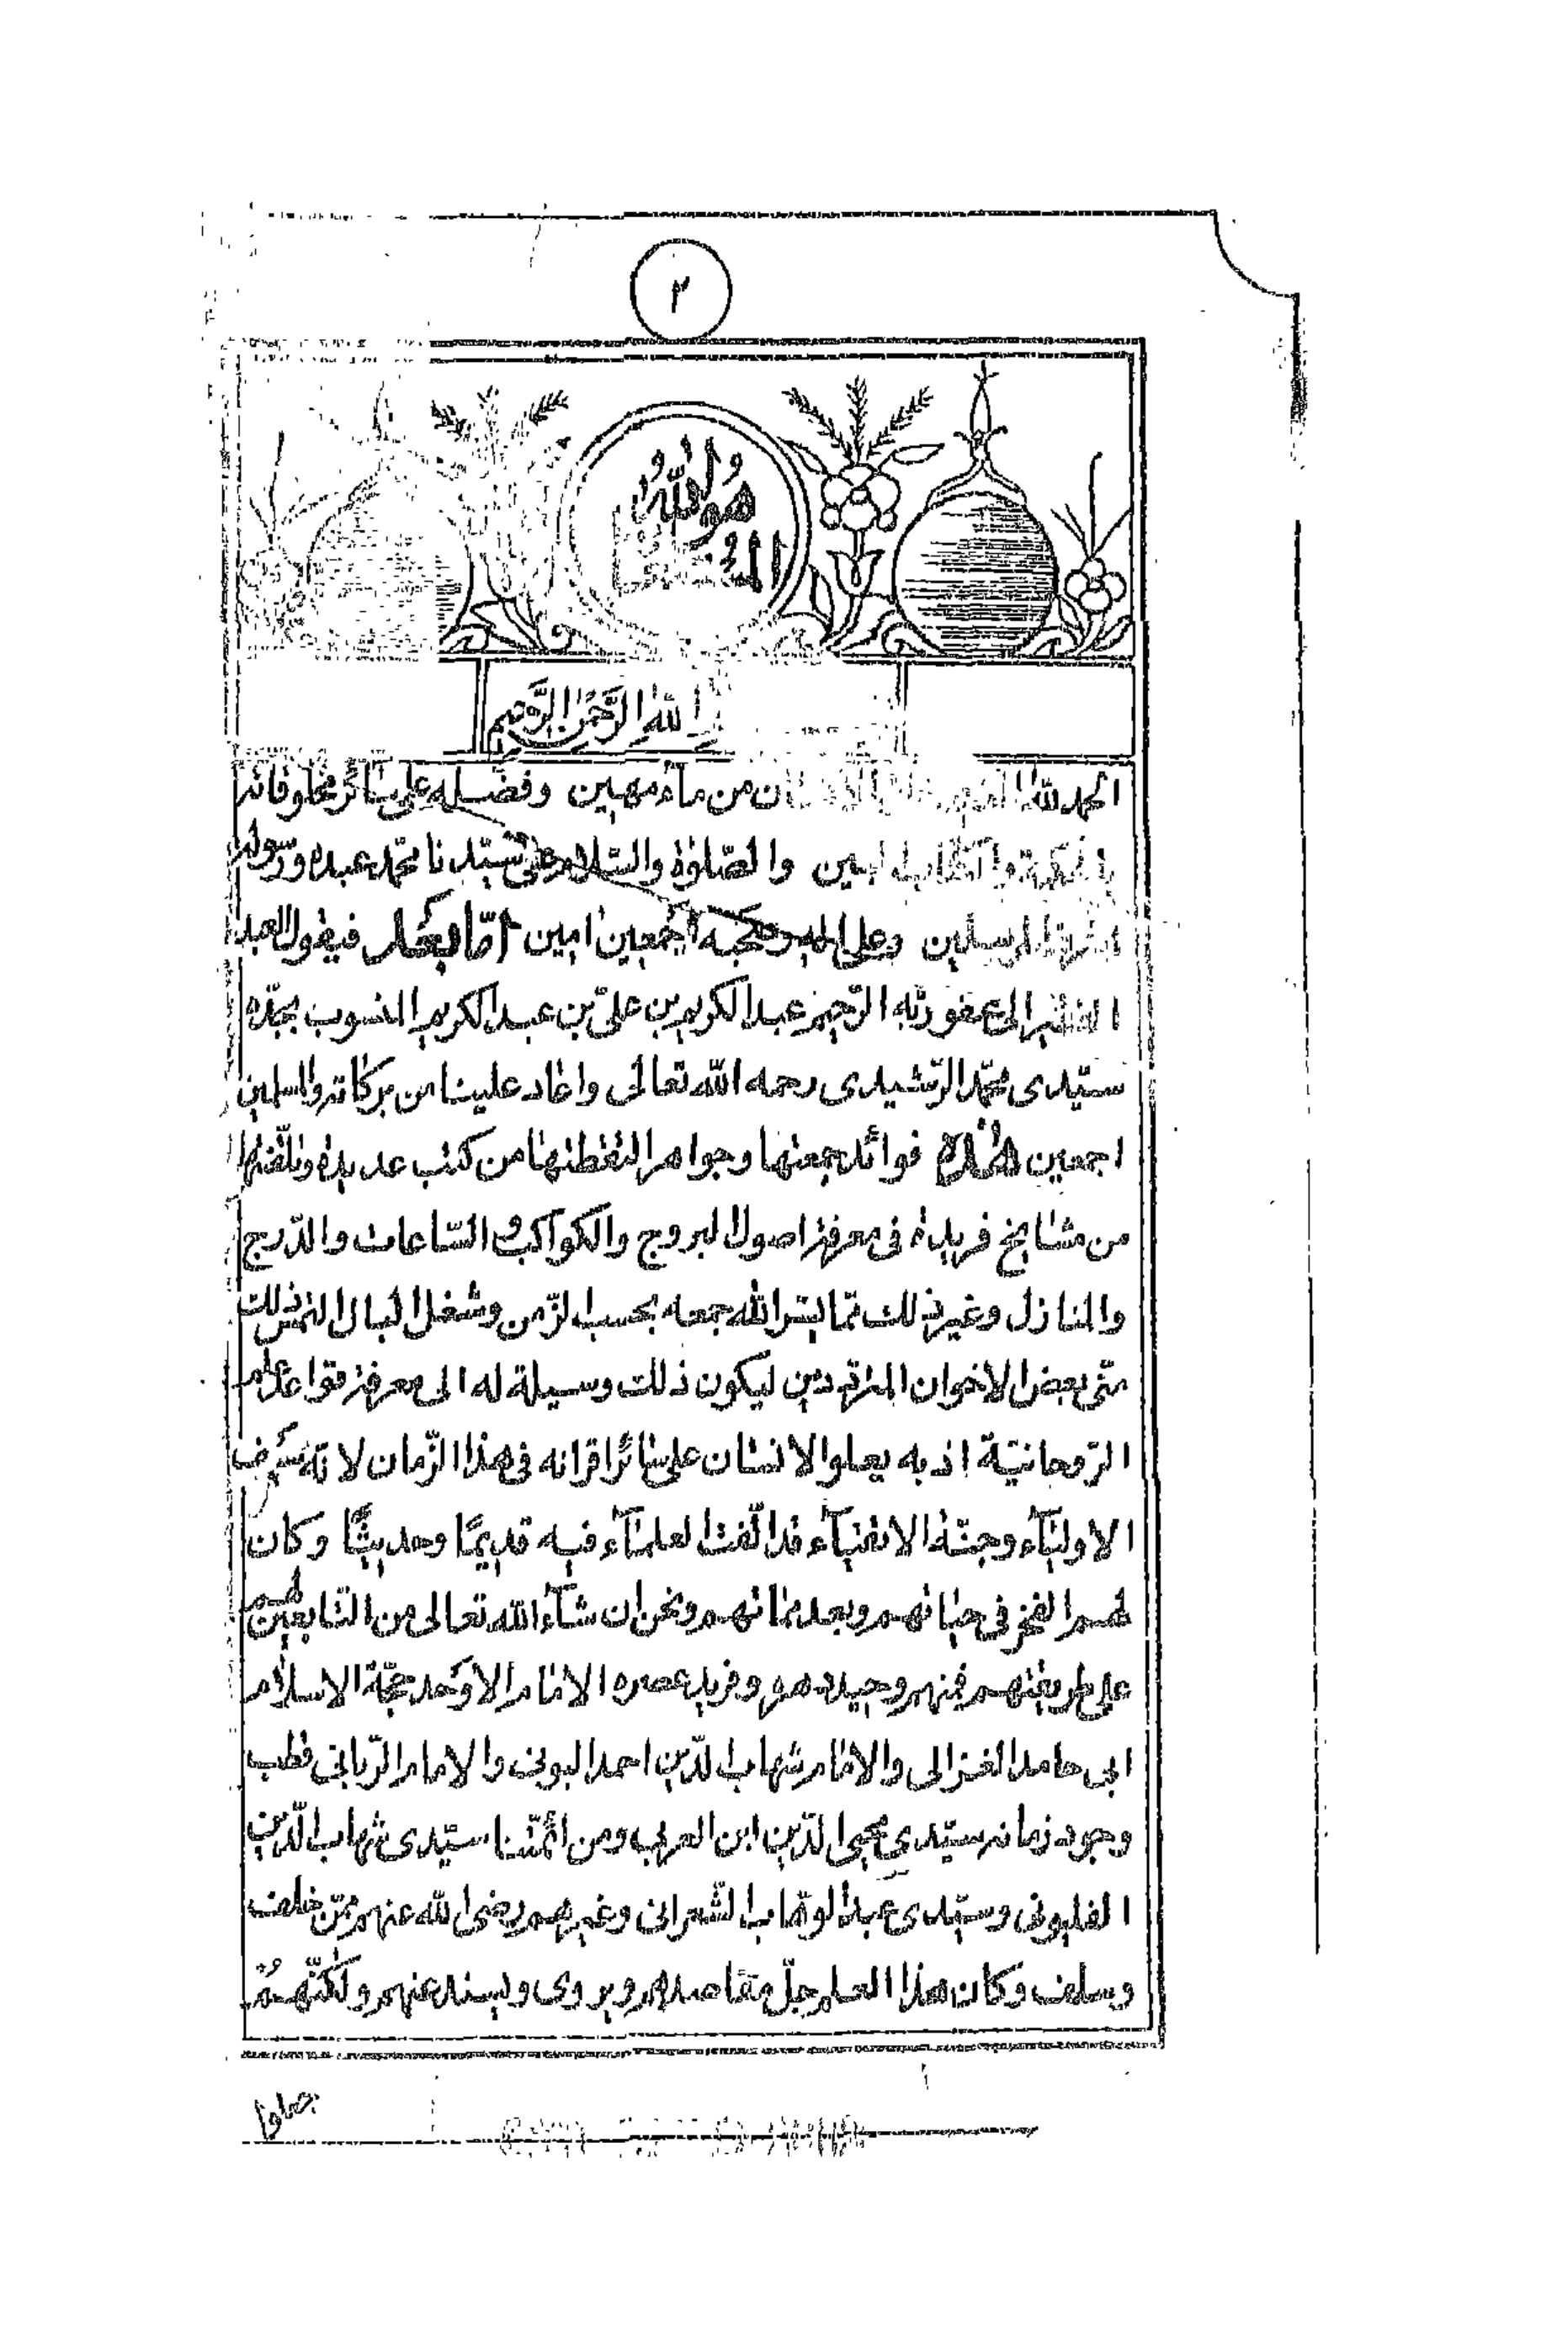 ٢
هو الله
الله الرحمن الرحيم
الحمد لله من مآء مهين وفضّله على سائر مخلوقاته
والصّلوة والسّلام على سيّدنا محمّد عبده ورسوله
المرسلين وعلى اله وصحبه اجمعين امين امّا بعد فيقول العبد
الى عفو ربّه الرّحيم عبد الكريم بن علىّ بن عبد الكريم المنسوب بجدّه
سيّدى محمّد الرّشيدى رحمه الله تعالى واعاد علينا من بركاته والمسلمين
اجمعين هذه فوائد جمعتها وجواهر التقطتها من كتب عديدة وتلقّيتها
من مشايخ فريدة فى معرفة اصول البروج والكواكب والسّاعات والدّرج
والمنازل وغير ذلك ممّا يسّر الله جمعه بحسب الزّمن وشغل البال التمس ذلك
منّى بعض الاخوان المتردّدين ليكون ذلك وسيلة له الى معرفة قواعد علم
الرّوحانيّة اذ به يعلوا الانسان على سائر اقرانه فى هذا الزّمان لانّه شرف
الاوليآء وجنّة الاتقيآء قد الّفت العلمآء فيه قديمًا وحديثًا وكان
لهم الفخر فى حياتهم وبعد مماتهم ونحن ان شآء الله تعالى من التّابعين لهم
على طريقتهم فمنهم وحيد دهره وفريد عصره الامام الاوحد حجّة الاسلام
ابى حامد الغزالى والامام شهاب الدّين احمد البونى والامام الرّبانى قطب
وجود زمانه سيّدى محيى الدّين ابن العربى ومن ائمّتنا سيّدى شهاب الدّين
القليوبى وسيّدى عبد الوهّاب الشّعرانى وغيرهم رضى الله عنهم ممّن خلف
وسلف وكان هذا العلم جلّ مقاصدهم ويروى ويسند عنهم ولكنّهم
جعلوا